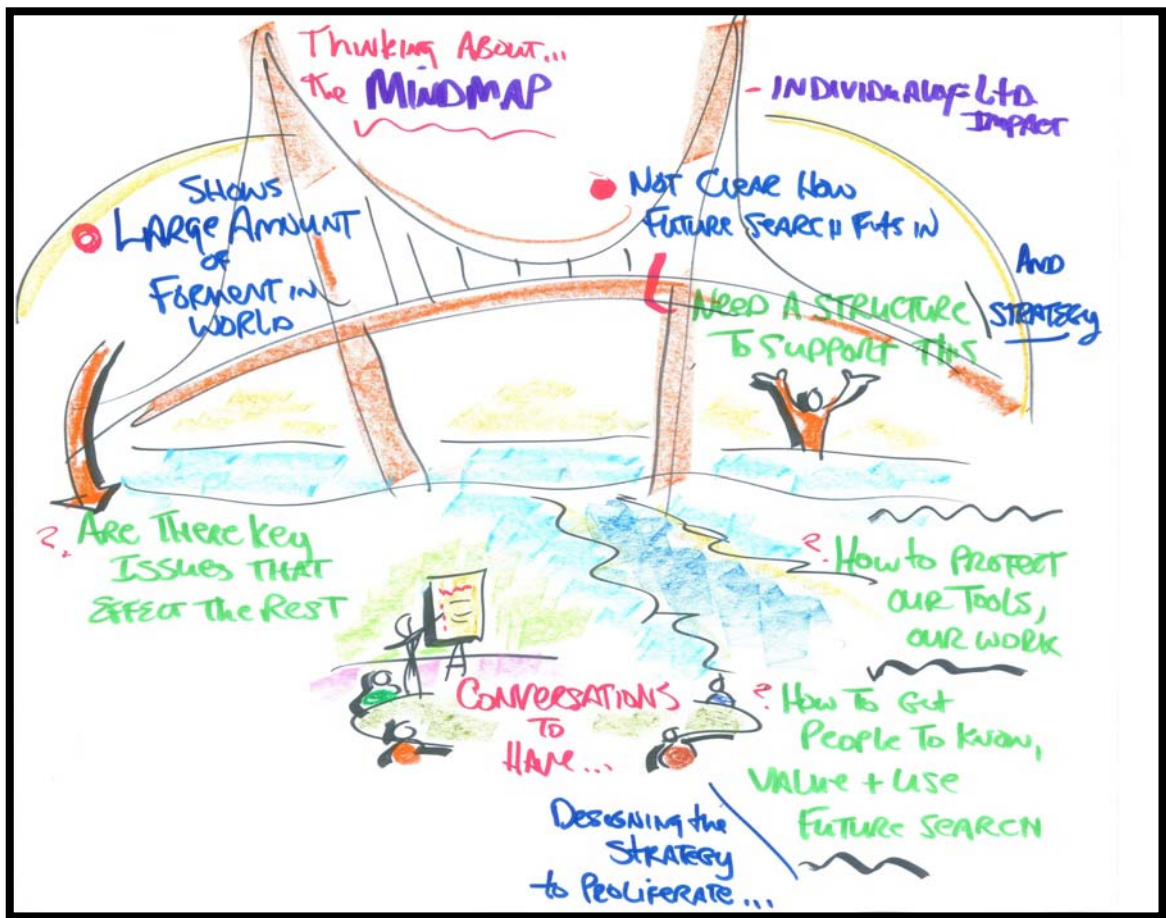 Thinking About...
the MINDMAP
- INDIVIDUALLY = Ltd.
IMPACT
SHOWS
LARGE AMOUNT
OF
FORMENT IN
WORLD
NOT CLEAR HOW
FUTURE SEARCH FITS IN
AND
STRATEGY
NEED A STRUCTURE
TO SUPPORT THIS
? ARE THERE KEY
ISSUES THAT
EFFECT THE REST
? HOW to PROTECT
OUR TOOLS,
OUR WORK
CONVERSATIONS
TO
HAVE...
? HOW TO GET
PEOPLE TO KNOW,
VALUE + USE
FUTURE SEARCH
DESIGNING the
STRATEGY
to PROLIFERATE...